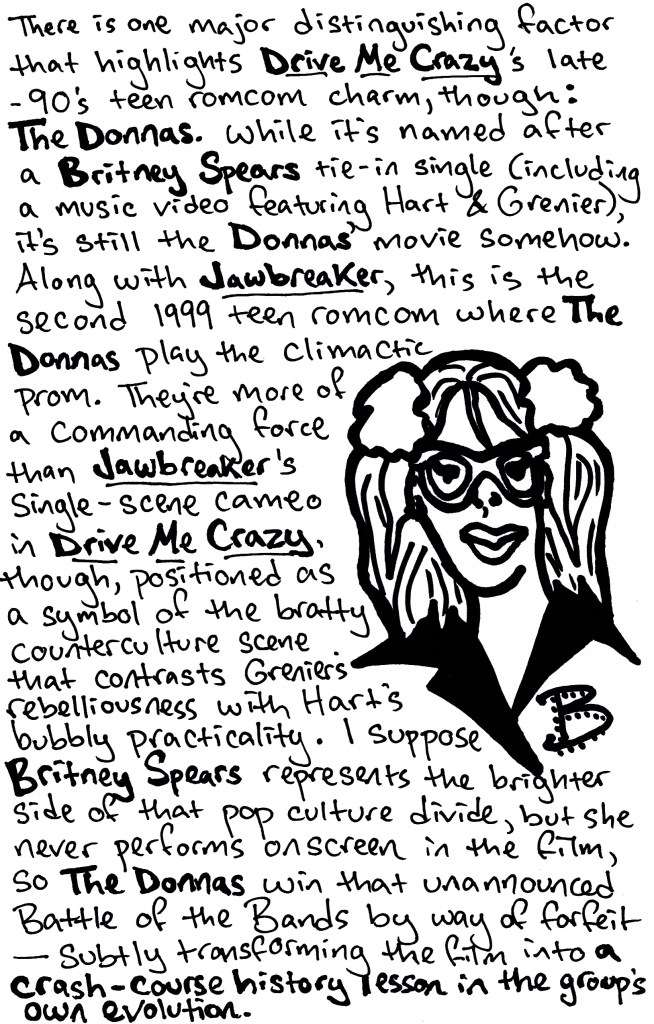 There is one major distinguishing factor
that highlights Drive Me Crazy's late
-90's teen romcom charm, though:
The Donnas. While it's named after
a Britney Spears tie-in single (including
a music video featuring Hart & Grenier),
it's still the Donnas' movie somehow.
Along with Jawbreaker, this is the
second 1999 teen romcom where The
Donnas play the climactic
prom. They're more of
a commanding force
than Jawbreaker's
single-scene cameo
in Drive Me Crazy,
though, positioned as
a symbol of the bratty
counterculture scene
that contrasts Grenier's
rebelliousness with Hart's
bubbly practicality. I suppose
B
Britney Spears represents the brighter
side of that pop culture divide, but she
never performs onscreen in the film,
so The Donnas win that unannounced
Battle of the Bands by way of forfeit
— subtly transforming the film into a
crash-course history lesson in the group's
own evolution.